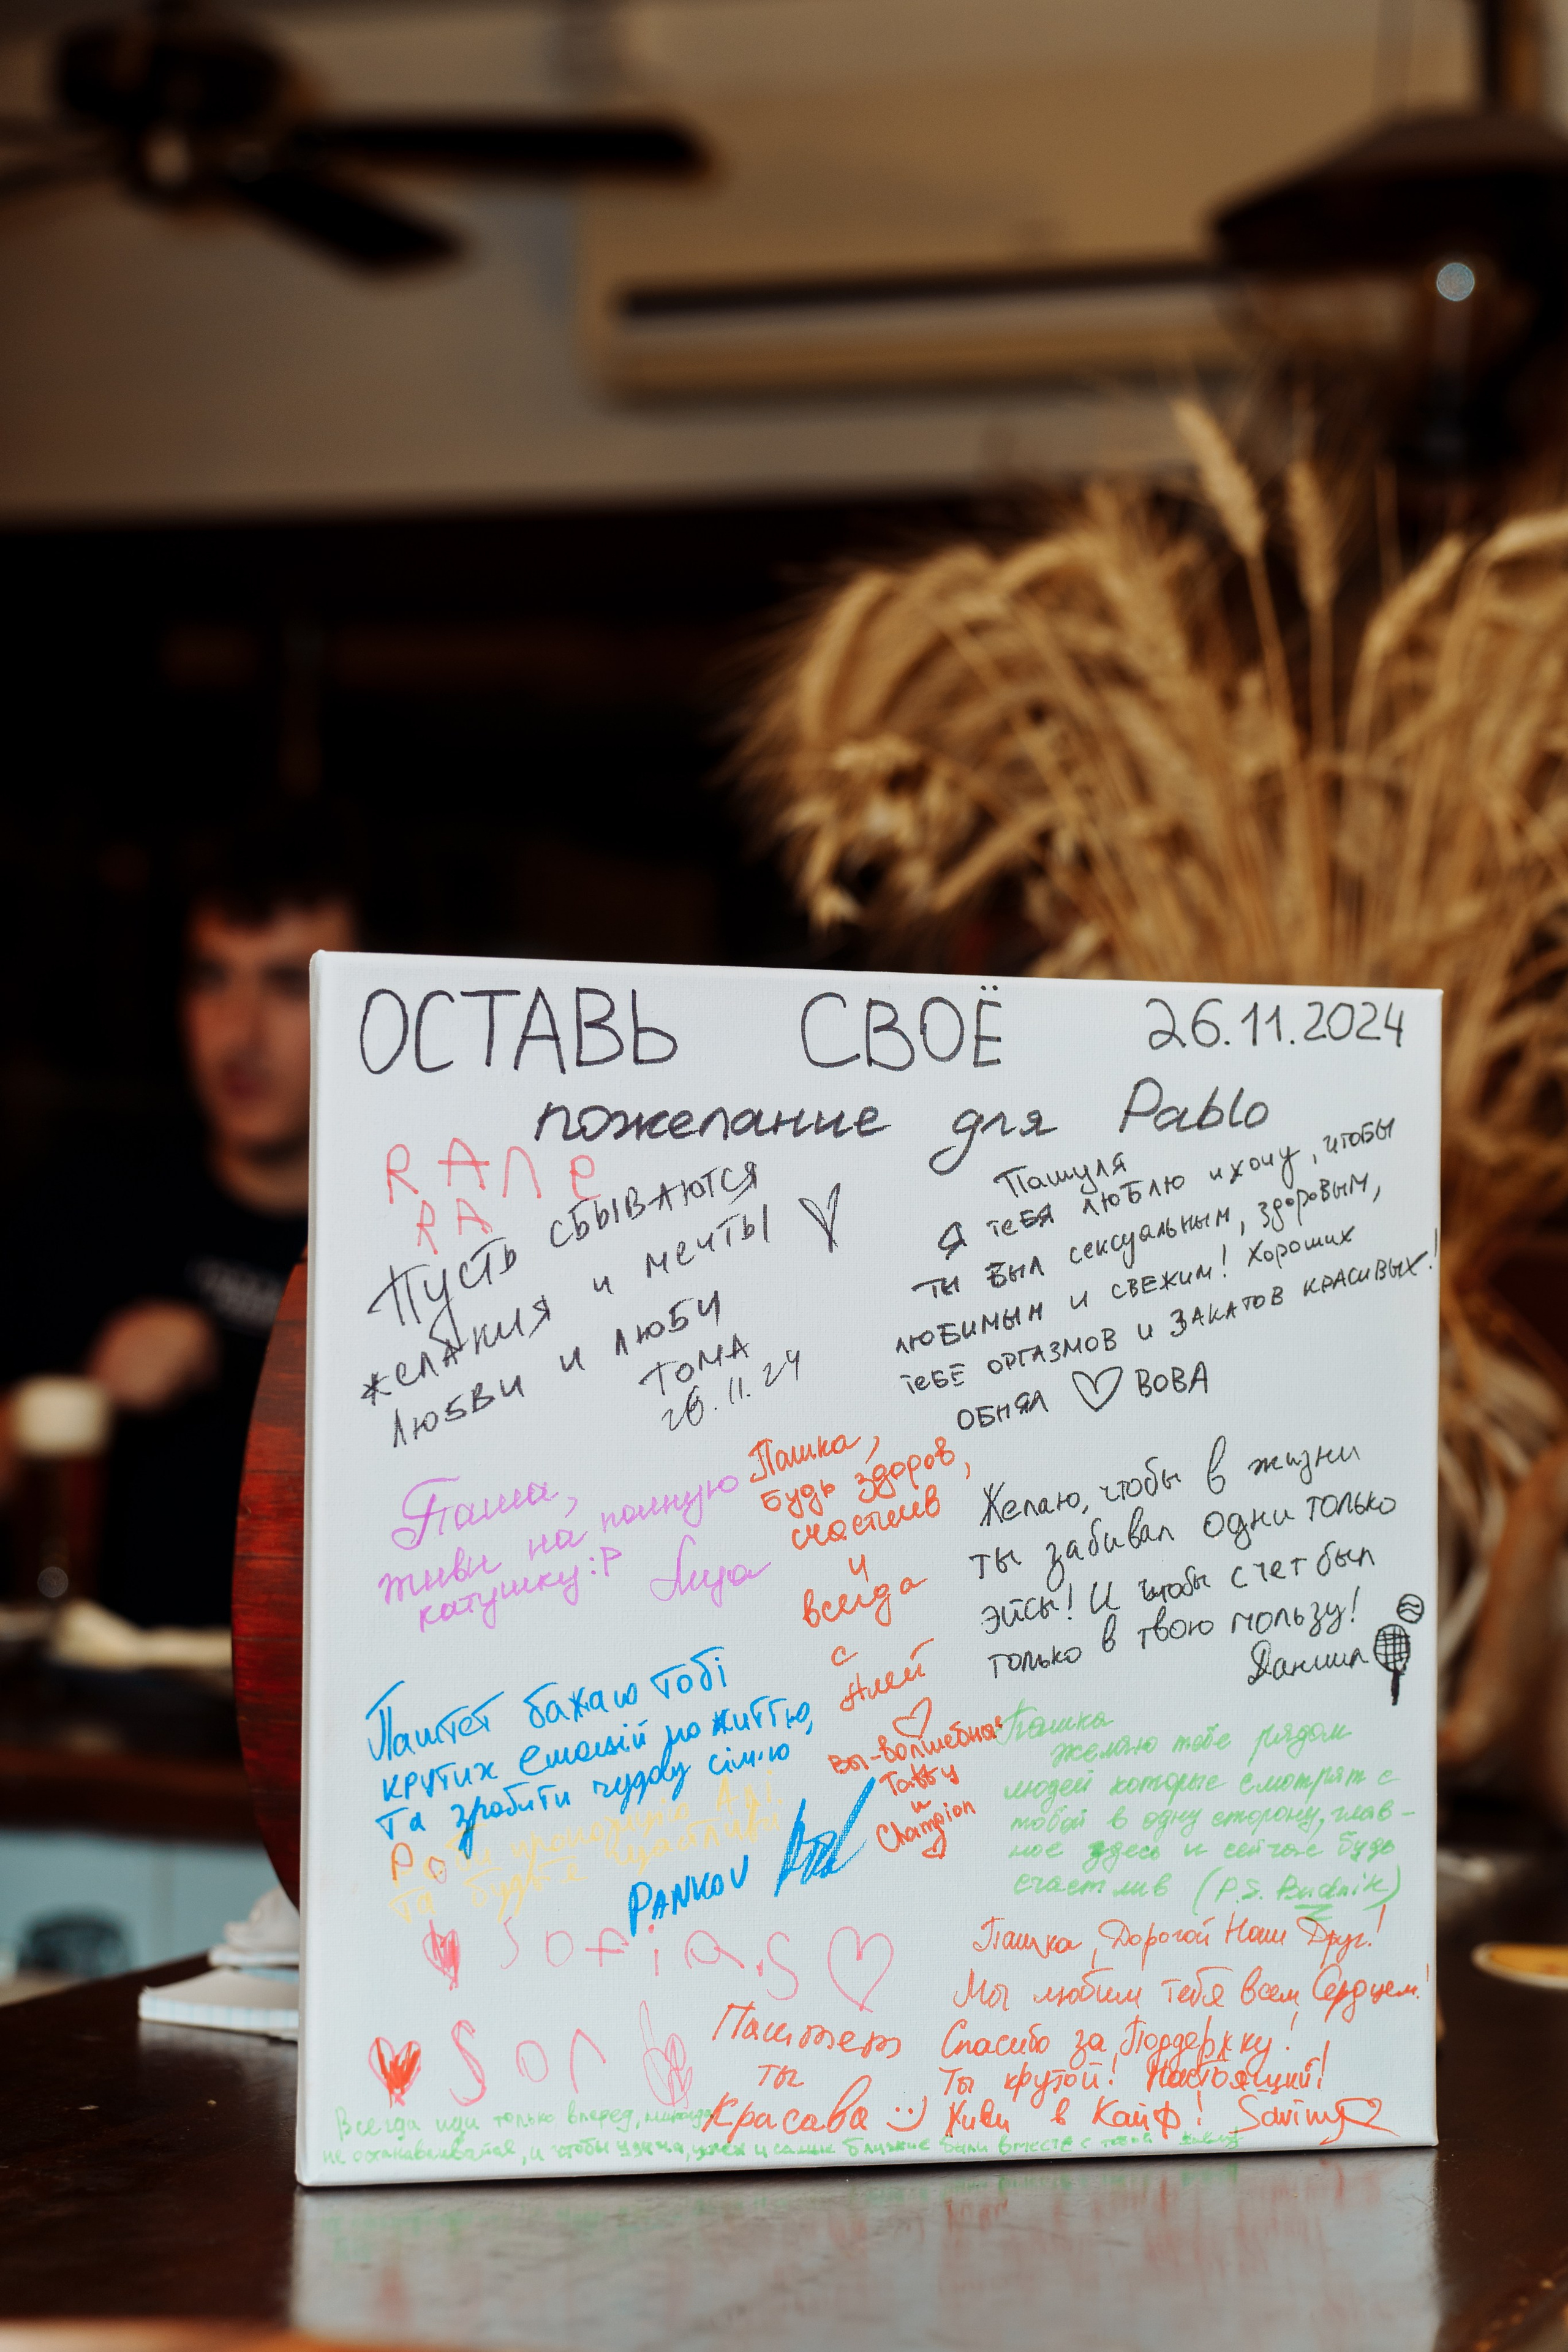 ОСТАВЬ СВОЁ 26.11.2024
пожелание для Pablo
RAПe
RA
Пусть сбываются
желания и мечты
Любви и люби
Тома
26.11.24
Пашуля
Я тебя люблю и хочу, чтобы
ты был сексуальным, здоровым,
любимым и свежим! Хороших
тебе оргазмов и закатов красивых!
Обнял ♡ Вова
Паша,
живи на полную
катушку :P Лица
Пашка,
Будь здоров,
счастлив
и
всегда
с
Алей
♡
Вы - волшебная
Taffy
и
Champion
Желаю, чтобы в жизни
ты забивал одни только
эйсы! И чтобы счет был
только в твою пользу!
Даниил
Паштет бажаю тобі
крутих емоцій по життю,
та зробити чудову сім'ю
PANKOV
Ро
та будьте щасливі
Пашка
желаю тебе рядом
людей которые смотрят с
тобой в одну сторону, глав-
ное здесь и сейчас будь
счастлив (P.S. Budnik)
Sofia.S ♡
Sor
Паштет
ты
Красава :)
Пашка, Дорогой Наш Друг!
Мы любим тебя всем Сердцем!
Спасибо за Поддержку!
Ты крутой! Настоящий!
Живи в Кайф! Saviny
Всегда иди только вперед, никогда
не останавливайся, и чтобы удача, успех и самые близкие были вместе с тобой